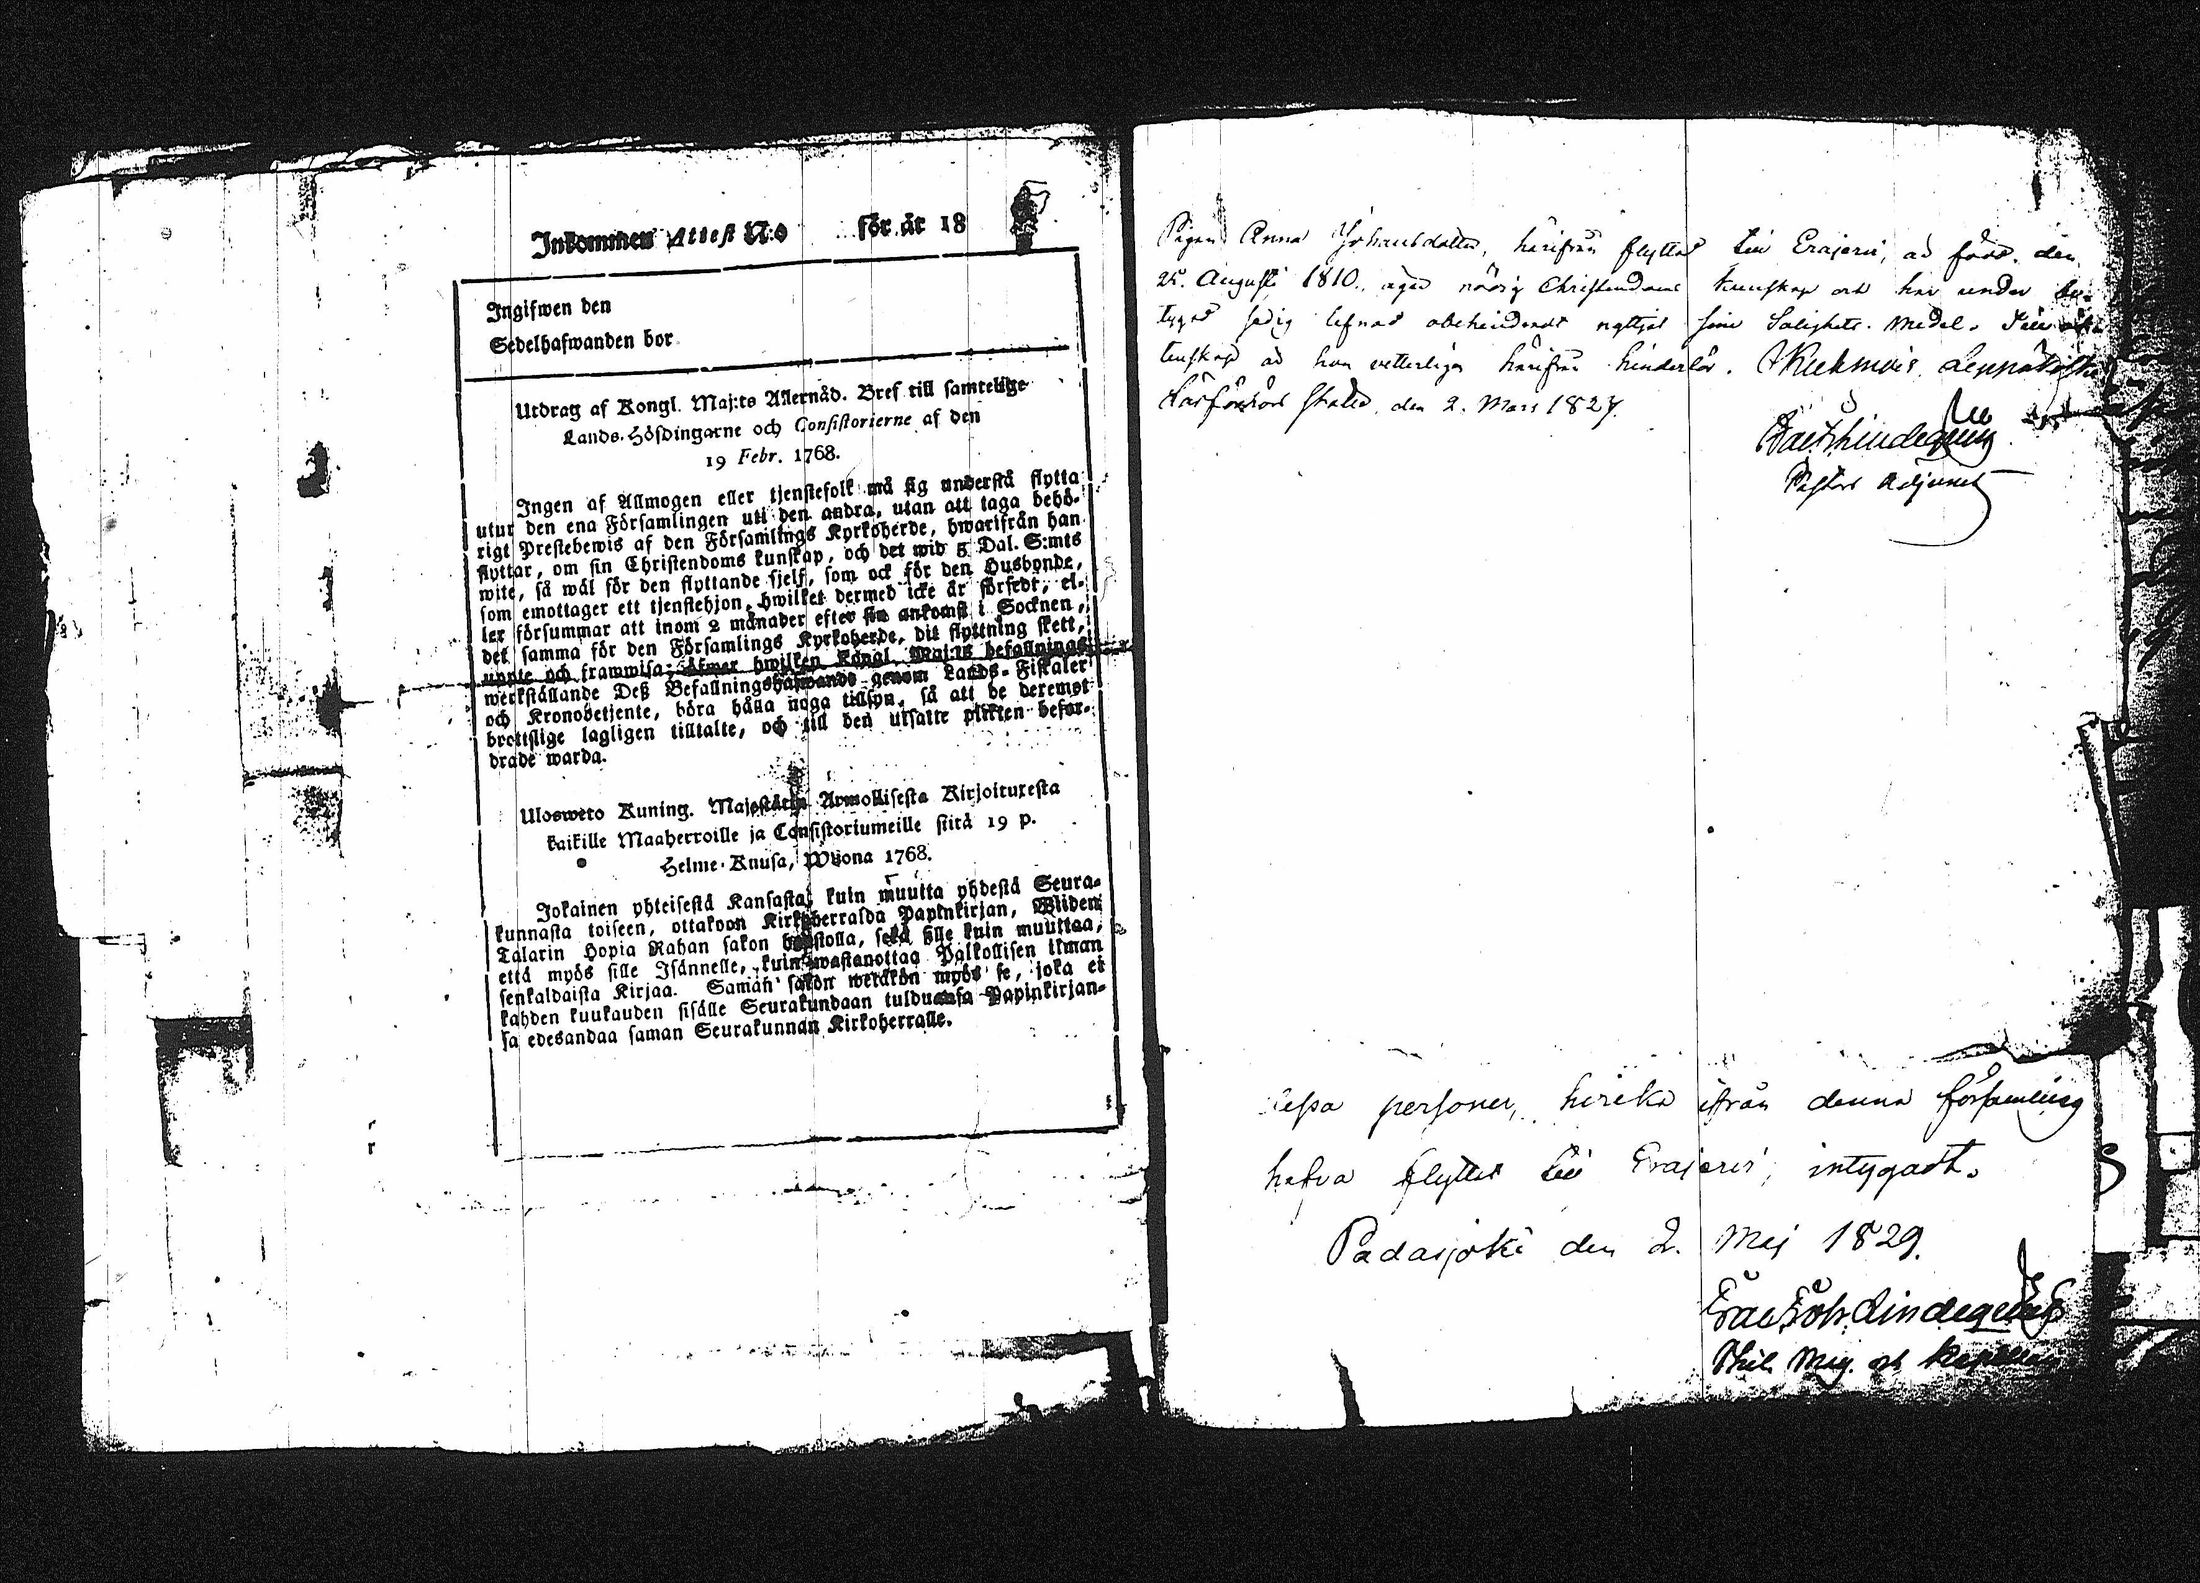 Inkommen Attest N:o för år 18
Ingifwen den
Sedelhafwanden bor
Utdrag af Kongl. Maj:ts Allernåd. Bref till samtelige
Lands-Höfdingarne och Consistorierne af den
19 Febr. 1768.
Ingen af Allmogen eller tjenstefolk må sig understå flytta
utur den ena Församlingen uti den andra, utan att taga behö-
rigt Prestebewis af den Församlings Kyrkoherde, hwarifrån han
flyttar, om sin Christendoms kunskap, och det wid 5 Dal. S:mts
wite, så wäl för den flyttande sjelf, som ock för den Husbonde,
som emottager ett tjenstehjon, hwilket dermed icke är försedt, el-
ler försummar att inom 2 månader efter sin ankomst i Socknen,
det samma för den Församlings Kyrkoherde, dit flyttning skett,
upte och framwisa; öfwer hwilken Kongl. Maj:ts befallnings
werkställande Deß Befallningshafwande genom Lands-Fiskaler
och Kronobetjente, böra hålla noga tillsyn, så att de deremot
brottslige lagligen tilltalte, och till den utsatte plikten befor-
drade warda.
Ulosweto Kuning. Majestätin Armollisesta Kirjoituxesta
kaikille Maaherroille ja Consistoriumeille siitä 19 p.
Helme-Kuusa, Wuona 1768.
Jokainen yhteisestä Kansasta, kuin muutta yhdestä Seura-
kunnasta toiseen, ottakoon Kirkkoherralda Papinkirjan, Wiiden
Talarin Hopia Rahan sakon haastolla, sekä sille kuin muuttaa,
että myös sille Isännelle, kuin wastanottaa Palkollisen ilman
senkaldaista Kirjaa. Saman sakon wetäkön myös se, joka ei
kahden kuukauden sisälle Seurakundaan tulduansa Papinkirjan-
sa edesandaa saman Seurakunnan Kirkoherralle.
Pigan Anna Johansdotter, härifrån flyttad till Erajervi, är född den
25. Augusti 1810. äger nödig Christendoms kunskap och har under be-
tygad sedig lefnad obehindradt nyttjat sine Salighets-Medel. Till
tenskap är hon vetterligen härifrån hinderlös. Kuhmois
Läsförhörs stalle, den 2. Mars 1827.
Pastors Adjunct
personer, hvilka ifrån denna församling
hafva flyttat till Erajervi, intygadt.
Padasjoki den 2. Maj 1829.
Phil. Mag. och Kapellan